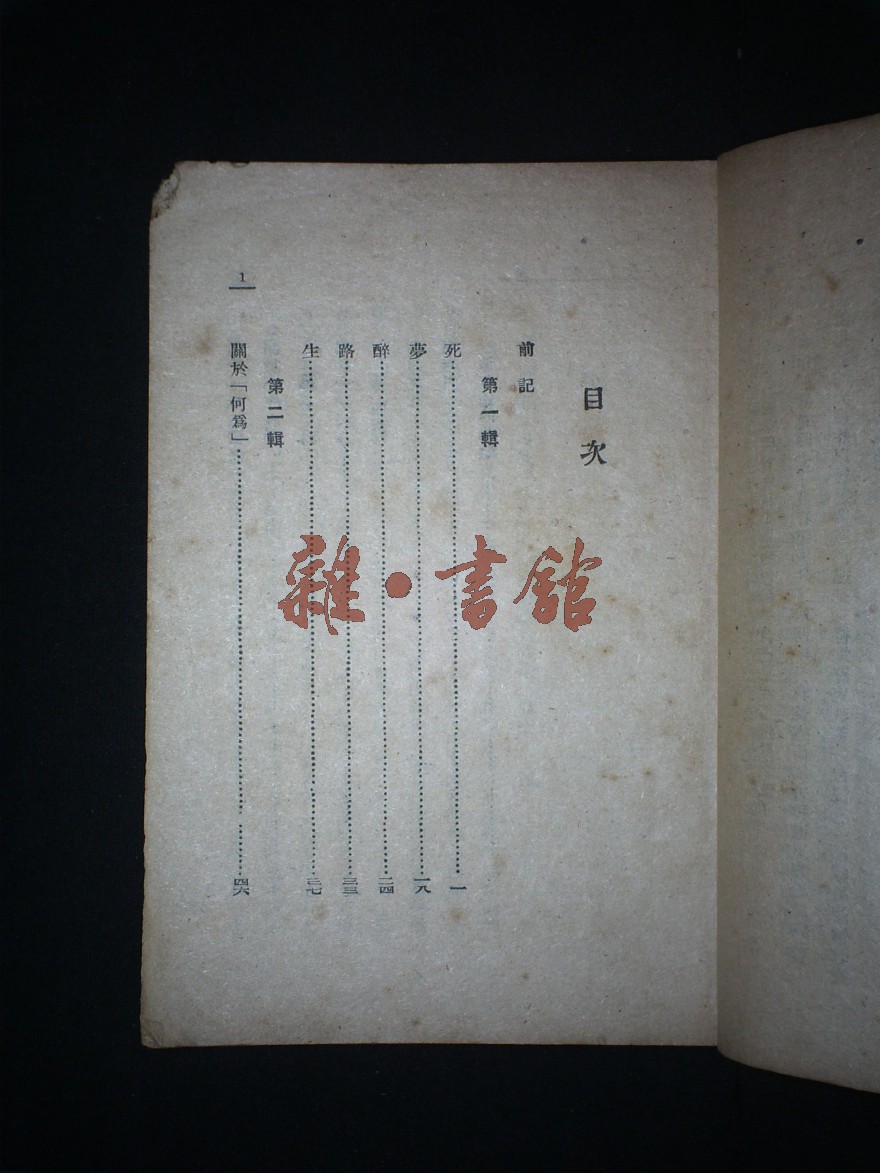 目次
前記
第一輯
死……一
夢……一八
醉……二四
路……三三
生……三七
第二輯
關於「何爲」……四六
1
雜·書館